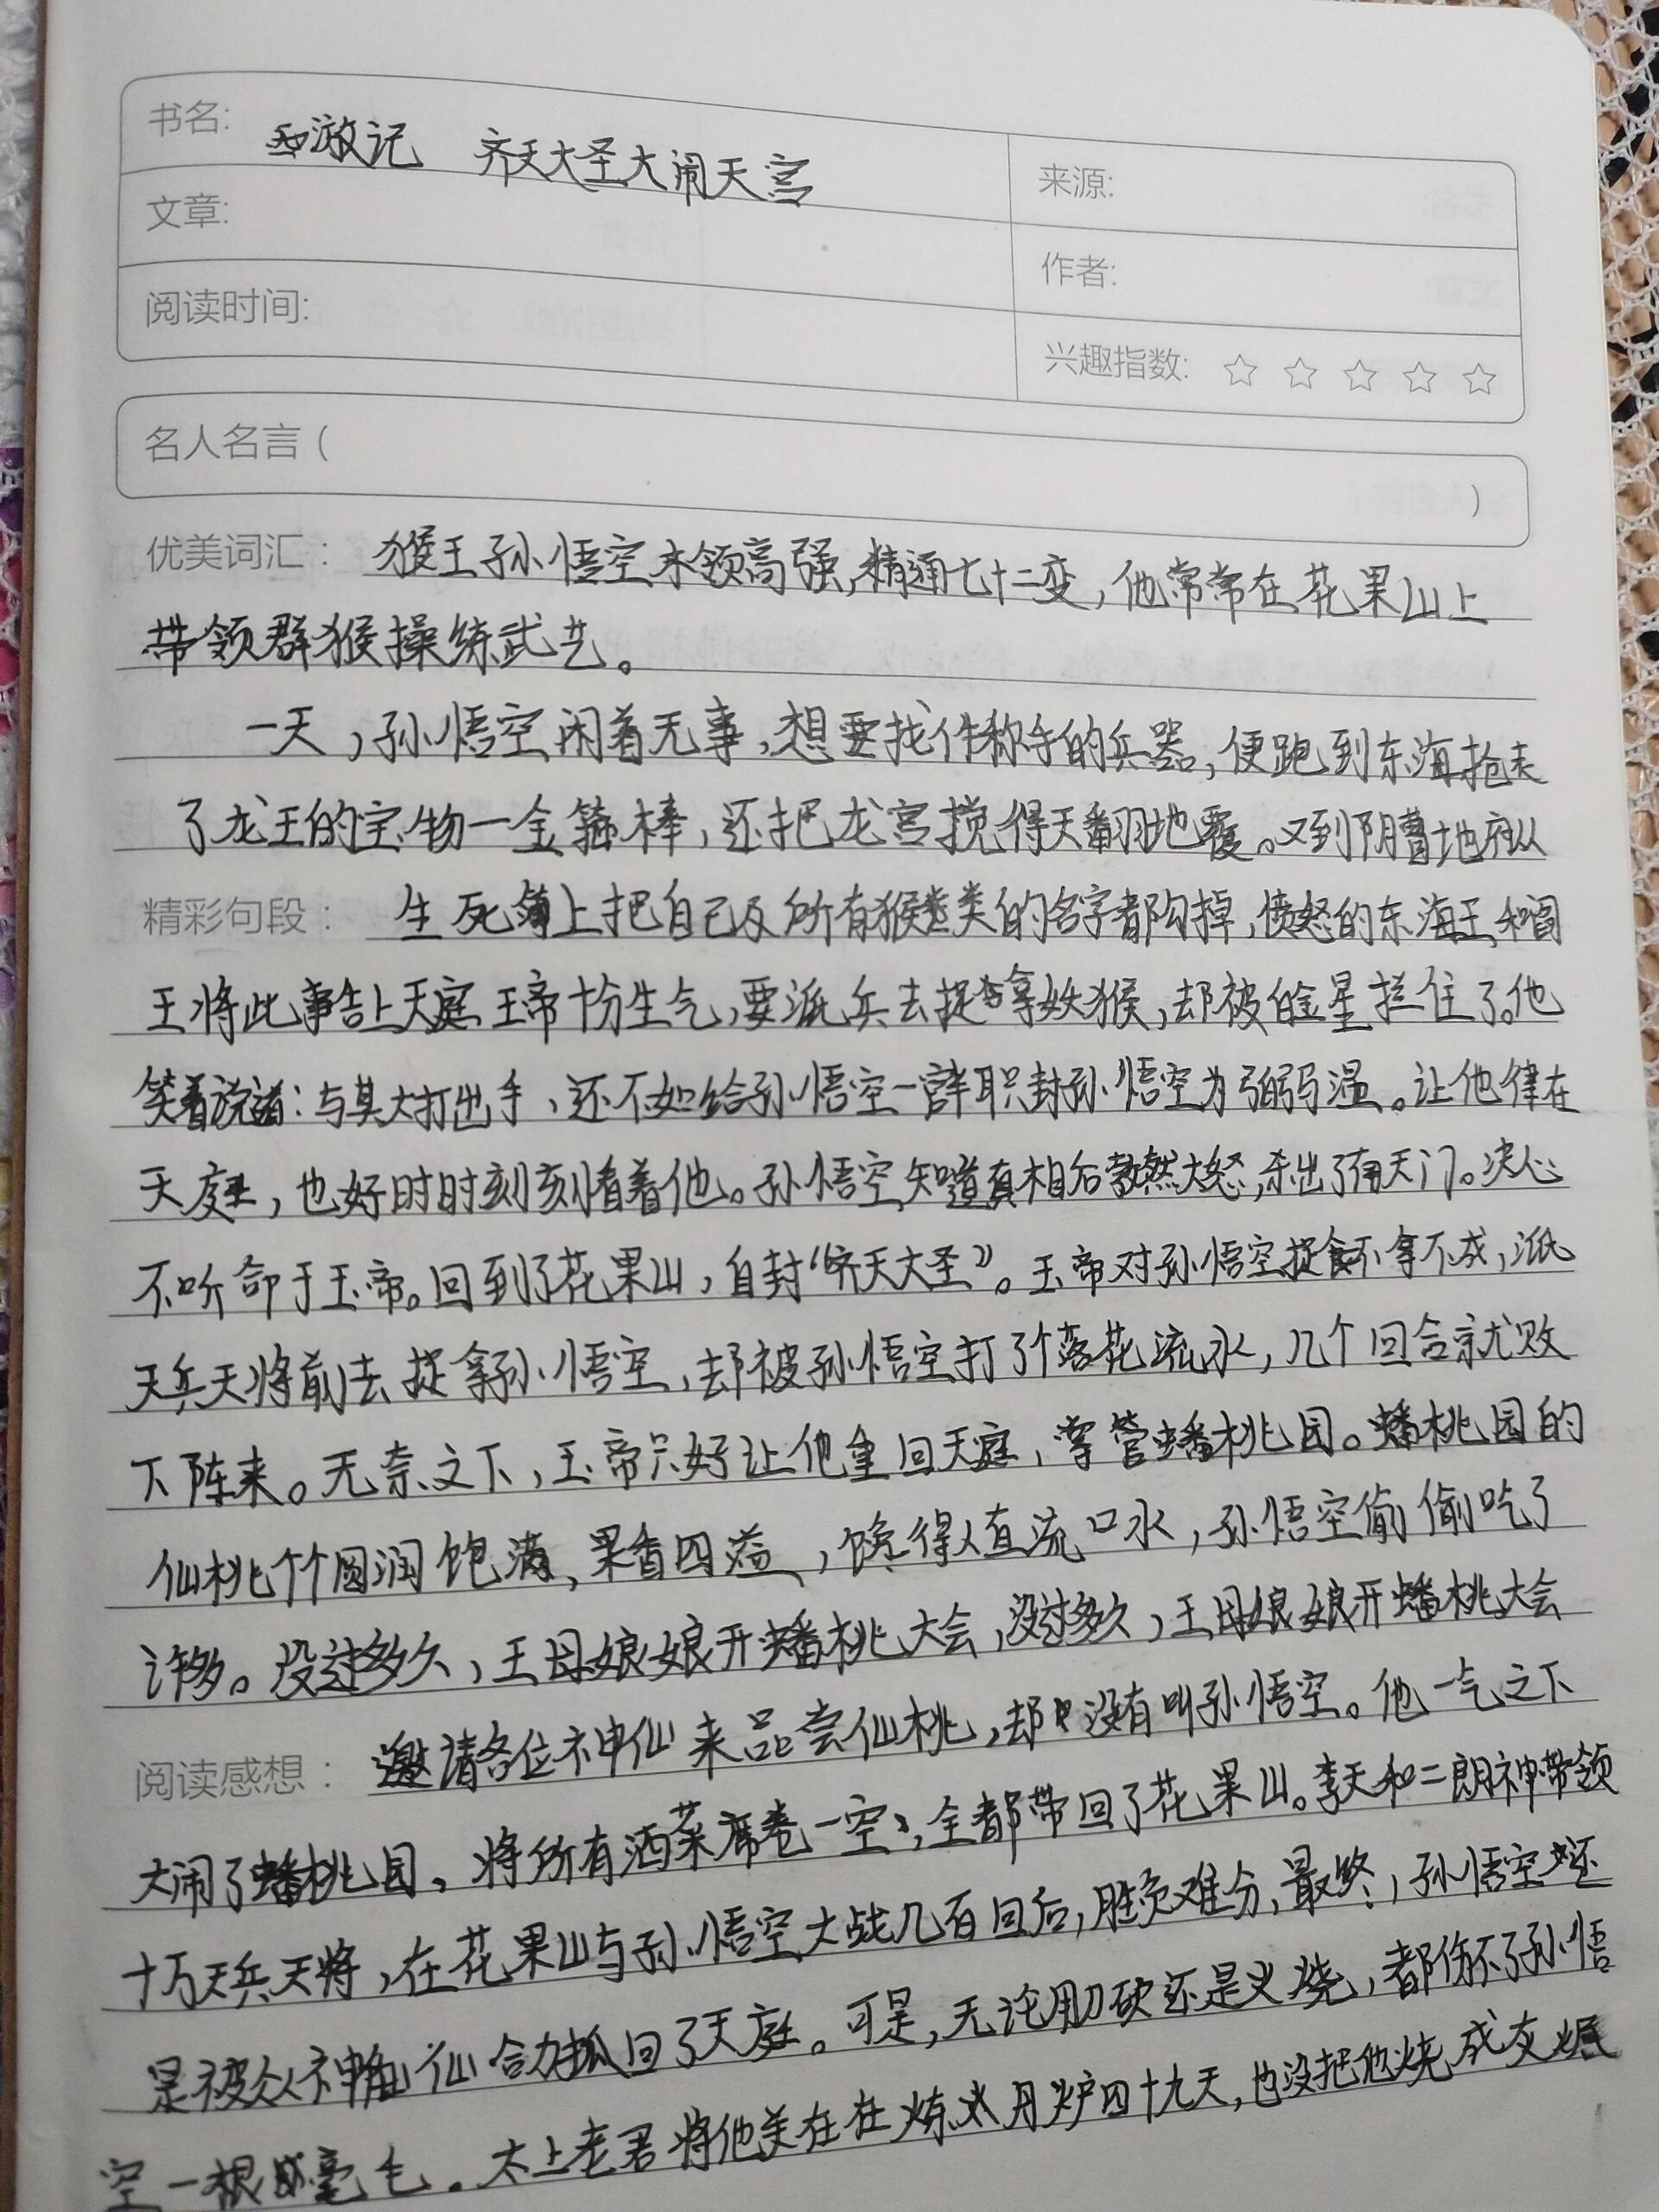 书名: 西游记 齐天大圣大闹天宫
来源:
文章:
作者:
阅读时间:
兴趣指数: ☆ ☆ ☆ ☆ ☆
名人名言 ( )
优美词汇: 猴王孙悟空本领高强,精通七十二变,他常常在花果山上
带领群猴操练武艺。
一天,孙悟空闲着无事,想要找件称手的兵器,便跑到东海抢走
了龙王的宝物一金箍棒,还把龙宫搅得天翻地覆。又到阴曹地府从
精彩句段: 生死簿上把自己及所有猴类的名字都勾掉,愤怒的东海王和阎
王将此事告上天庭 玉帝十份生气,要派兵去捉拿妖猴,却被白金星拦住了。他
笑着说道:与其大打出手,还不如给孙悟空一官半职封孙悟空为弼马温。让他律在
天庭,也好时时刻刻看着他。孙悟空知道真相后勃然大怒,杀出了南天门。决心
不听命于玉帝。回到了花果山,自封“齐天大圣”。玉帝对孙悟空捉不拿不成,派
天兵天将前去捉拿孙悟空,却被孙悟空打了个落花流水,几个回合就败
下阵来。无奈之下,玉帝只好让他重回天庭,掌管蟠桃园。蟠桃园的
仙桃个个圆润饱满、果香四溢,馋得人直流口水,孙悟空偷偷吃了
许多。没过多久,王母娘娘开蟠桃大会,没过多久,王母娘娘开蟠桃大会
阅读感想: 邀请各位神仙来品尝仙桃,却没有叫孙悟空。他一气之下
大闹了蟠桃园,将所有酒菜席卷一空,全都带回了花果山。李天和二朗神带领
十万天兵天将,在花果山与孙悟空大战几百回后,胜负难分,最终,孙悟空还
是被众神仙合力抓回了天庭。可是,无论用刀砍还是火烧,都伤不了孙悟
空一根毫毛。太上老君将他关在在炼丹炉四十九天,也没把他烧成灰烬